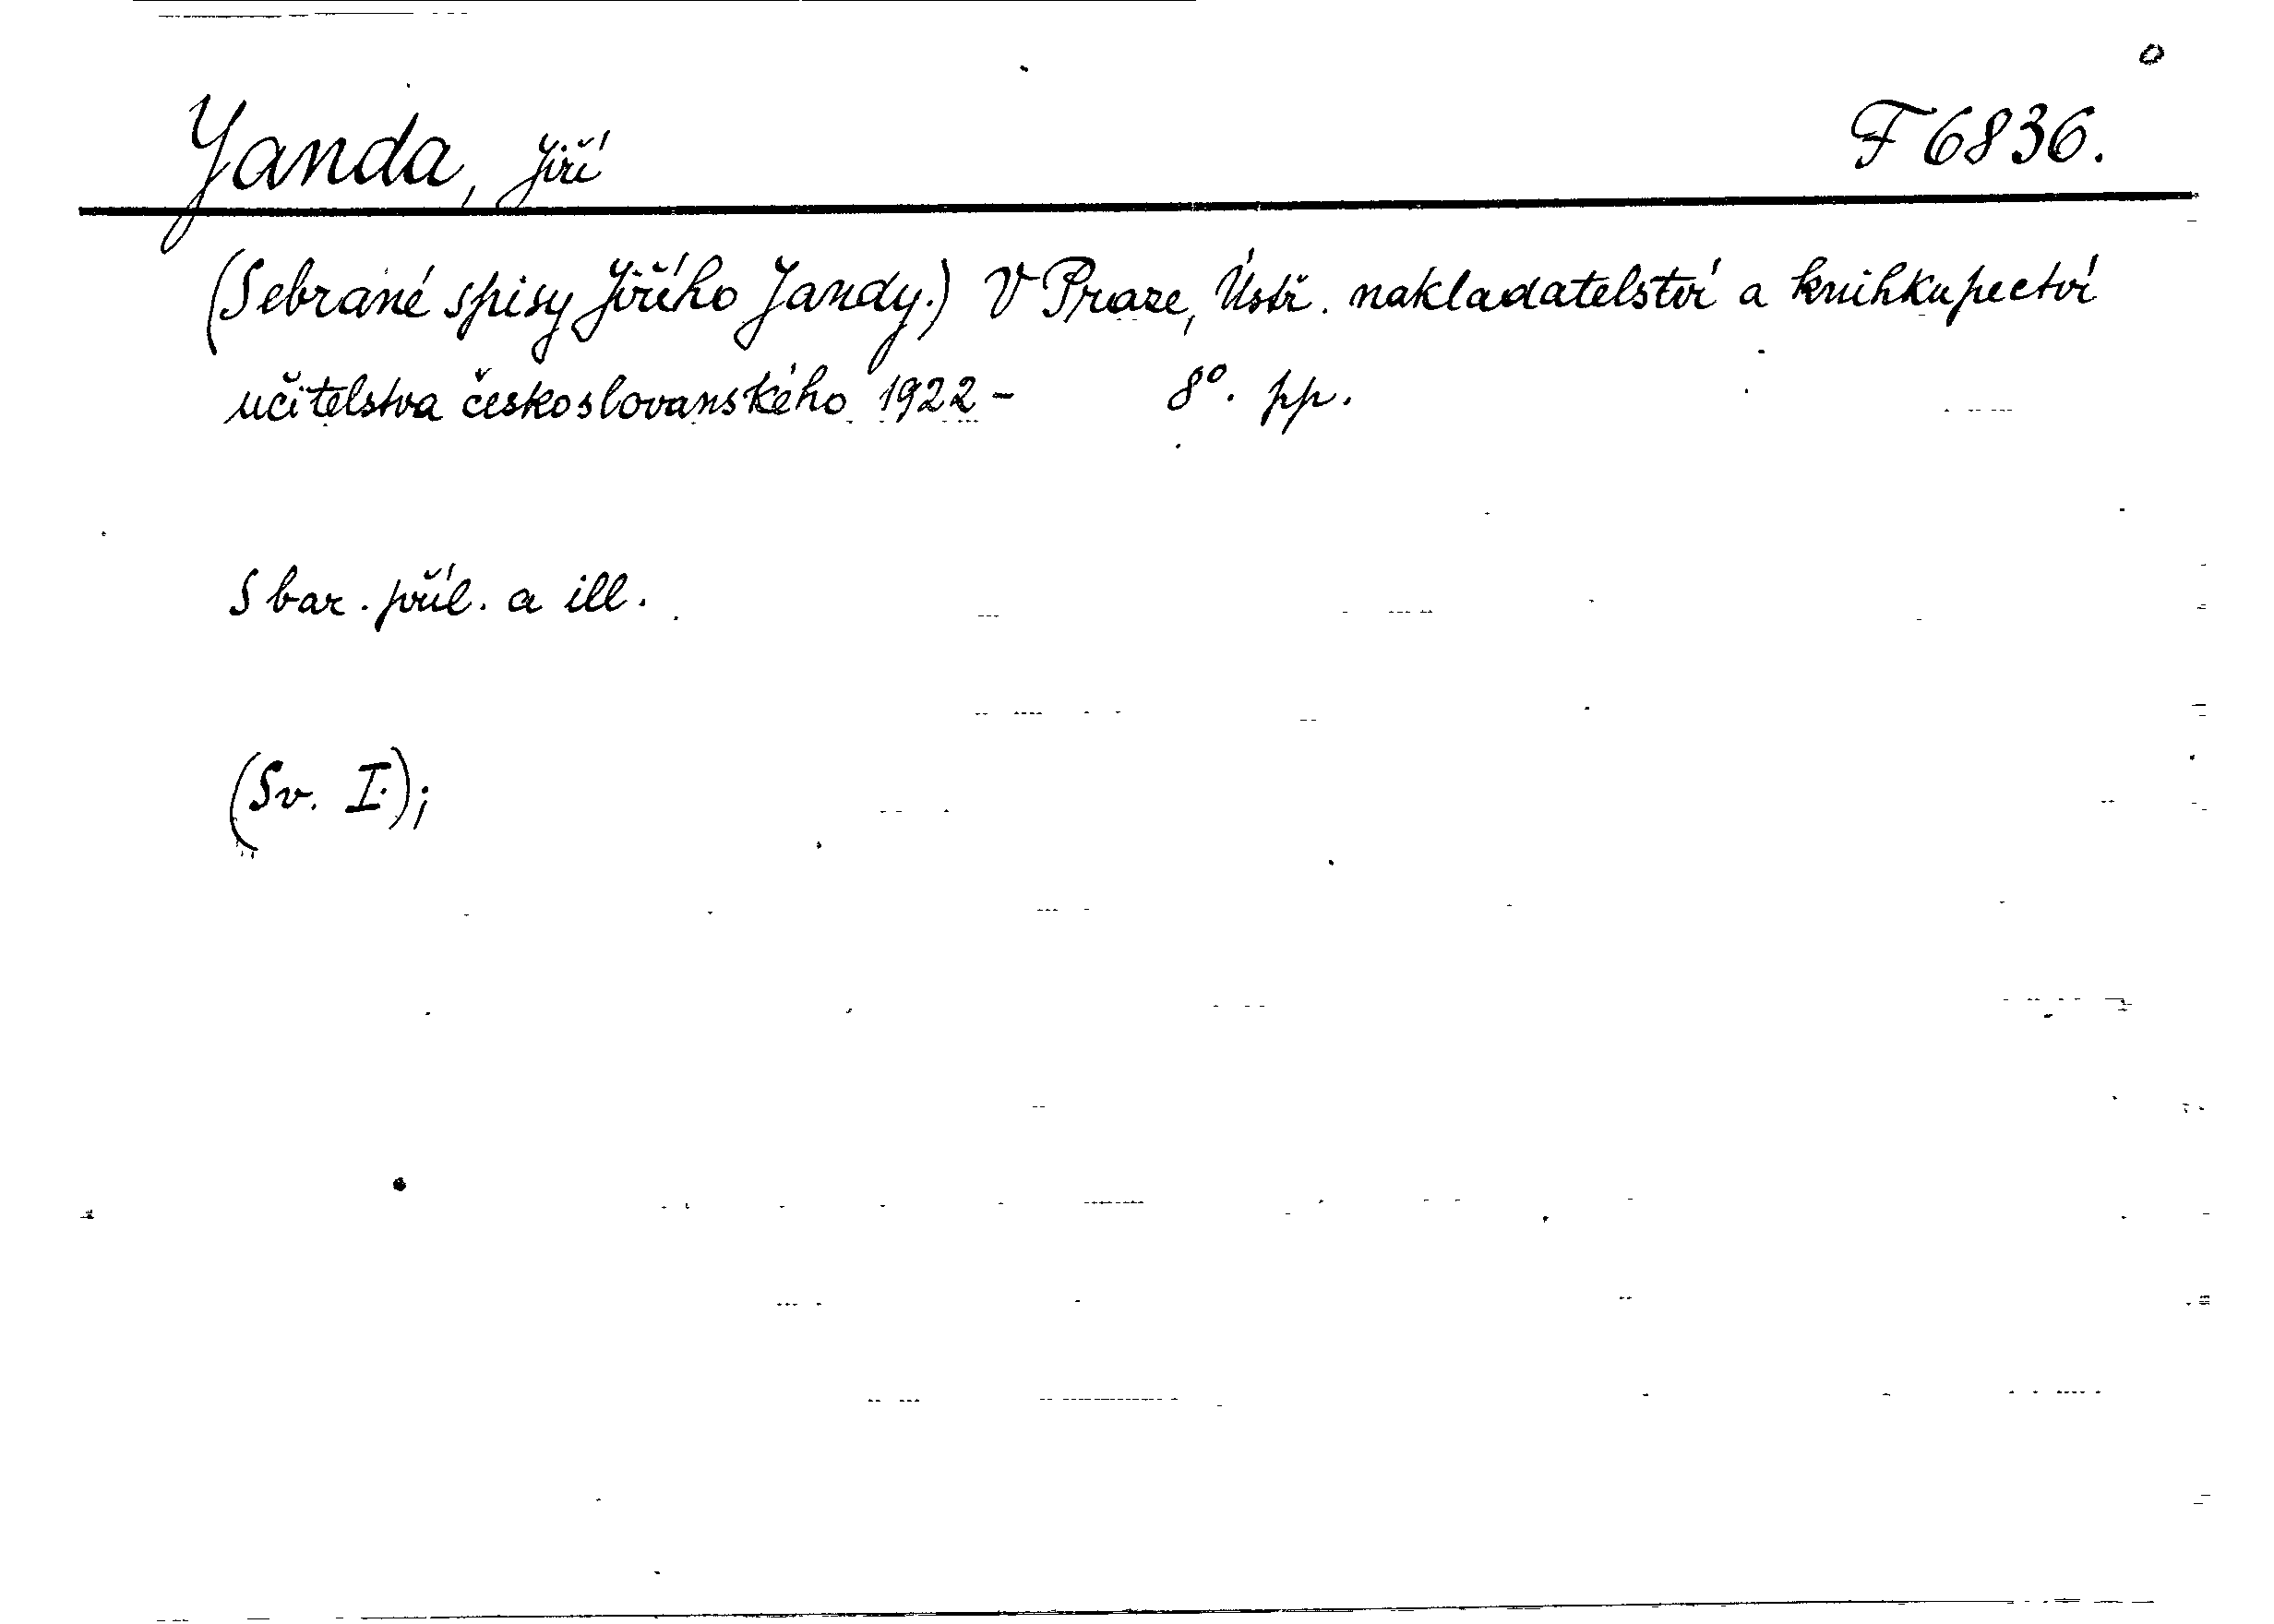 Janda, Jiří F 6836.
(Sebrané spisy Jiřího Jandy.) V Praze, Ústř. nakladatelství a knihkupectví
učitelstva českoslovanského 1922 - 8°. pp.
S bar. příl. a ill.
(Sv. I.);